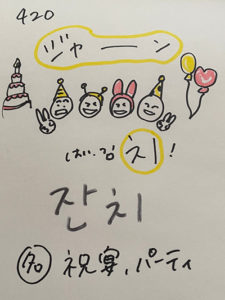 420
ジャーン
はい、김치!
잔치
名 祝宴、パーティ